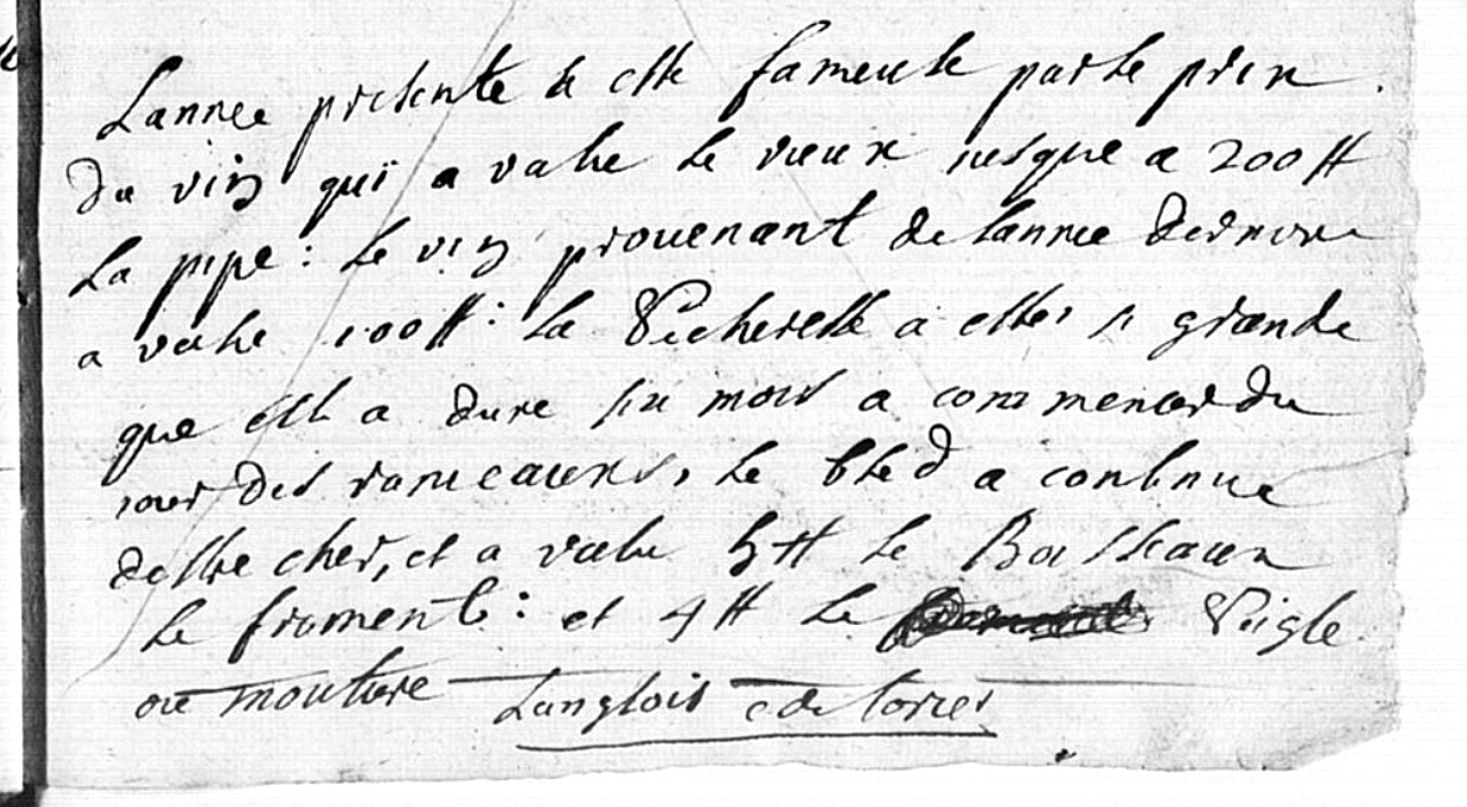 Lannee presente a este fameuse par le prix
du vin qui a valu le vieux jusque a 200 ₶
la pipe : le vin provenant de lannee derniere
a valu 100 ₶ : la Secheresse a estes si grande
que elle a dure six mois a commencer du
jour des rameauxs, le bled a continue
destre cher, et a valu 5 ₶ le Boisseaux
le froment : et 4 ₶ le Seigle
ou mouture Langlois c de